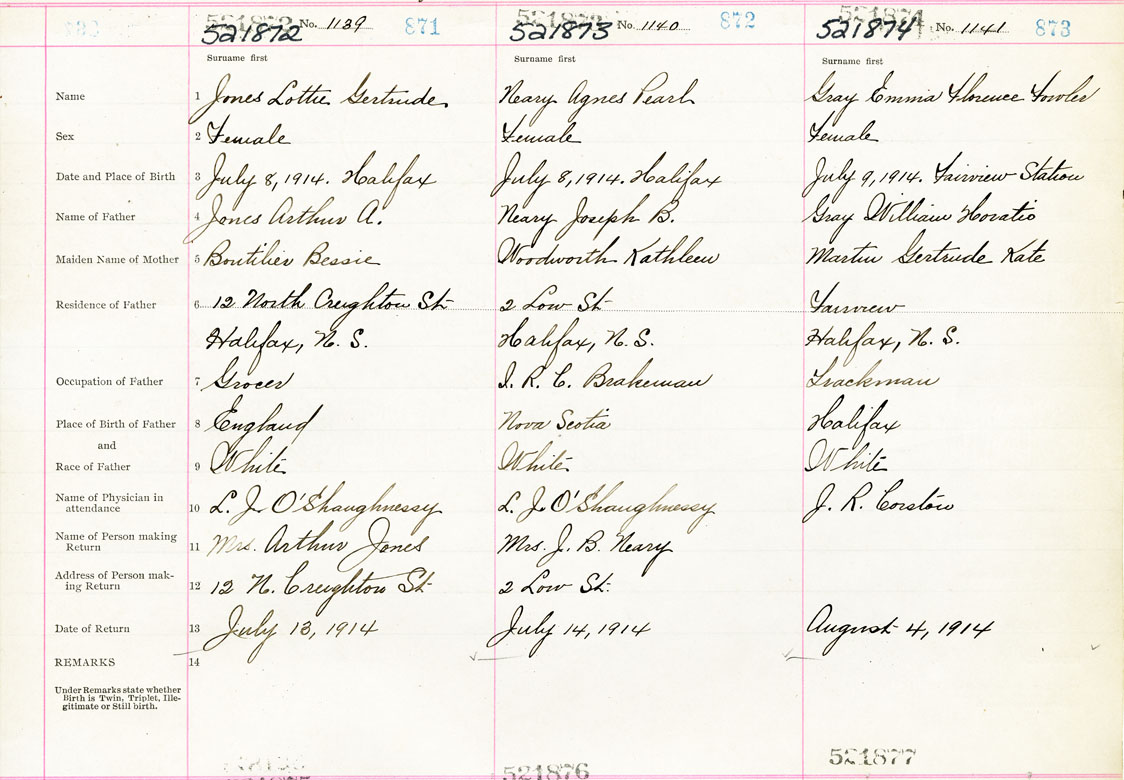 521872 No. 1139 871 521873 No. 1140 872 521874 No. 1141 873
Surname first Surname first Surname first
Name 1 Jones Lottie Gertrude Neary Agnes Pearl Gray Emma Florence Fowler
Sex 2 Female Female Female
Date and Place of Birth 3 July 8, 1914. Halifax July 8, 1914. Halifax July 9, 1914. Fairview Station
Name of Father 4 Jones Arthur A. Neary Joseph B. Gray William Horatio
Maiden Name of Mother 5 Boutilier Bessie Woodworth Kathleen Martin Gertrude Kate
Residence of Father 6 12 North Creighton St 2 Low St Fairview
Halifax, N. S. Halifax, N. S. Halifax, N. S.
Occupation of Father 7 Grocer I. R. C. Brakeman Trackman
Place of Birth of Father 8 England Nova Scotia Halifax
and
Race of Father 9 White White White
Name of Physician in
attendance 10 L. J. O'Shaughnessy L. J. O'Shaughnessy J. R. Corston
Name of Person making
Return 11 Mrs. Arthur Jones Mrs. J. B. Neary
Address of Person mak-
ing Return 12 12 N. Creighton St 2 Low St.
Date of Return 13 July 13, 1914 July 14, 1914 August 4, 1914
REMARKS 14
Under Remarks state whether
Birth is Twin, Triplet, Ille-
gitimate or Still birth.
521876 521877